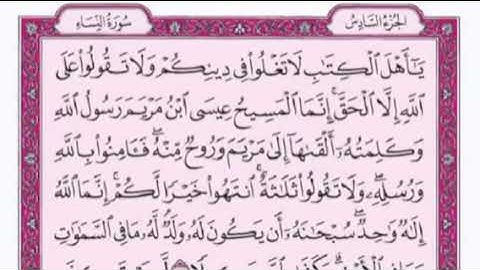 الجزء السادس
سورة النساء
يَٰٓأَهْلَ ٱلْكِتَٰبِ لَا تَغْلُوا۟ فِى دِينِكُمْ وَلَا تَقُولُوا۟ عَلَى
ٱللَّهِ إِلَّا ٱلْحَقَّ ۚ إِنَّمَا ٱلْمَسِيحُ عِيسَى ٱبْنُ مَرْيَمَ رَسُولُ ٱللَّهِ
وَكَلِمَتُهُۥٓ أَلْقَىٰهَآ إِلَىٰ مَرْيَمَ وَرُوحٌ مِّنْهُ ۖ فَـَٔامِنُوا۟ بِٱللَّهِ
وَرُسُلِهِۦ ۖ وَلَا تَقُولُوا۟ ثَلَٰثَةٌ ۚ ٱنتَهُوا۟ خَيْرًا لَّكُمْ ۚ إِنَّمَا ٱللَّهُ
إِلَٰهٌ وَٰحِدٌ ۖ سُبْحَٰنَهُۥٓ أَن يَكُونَ لَهُۥ وَلَدٌ ۘ لَّهُۥ مَا فِى ٱلسَّمَٰوَٰتِ